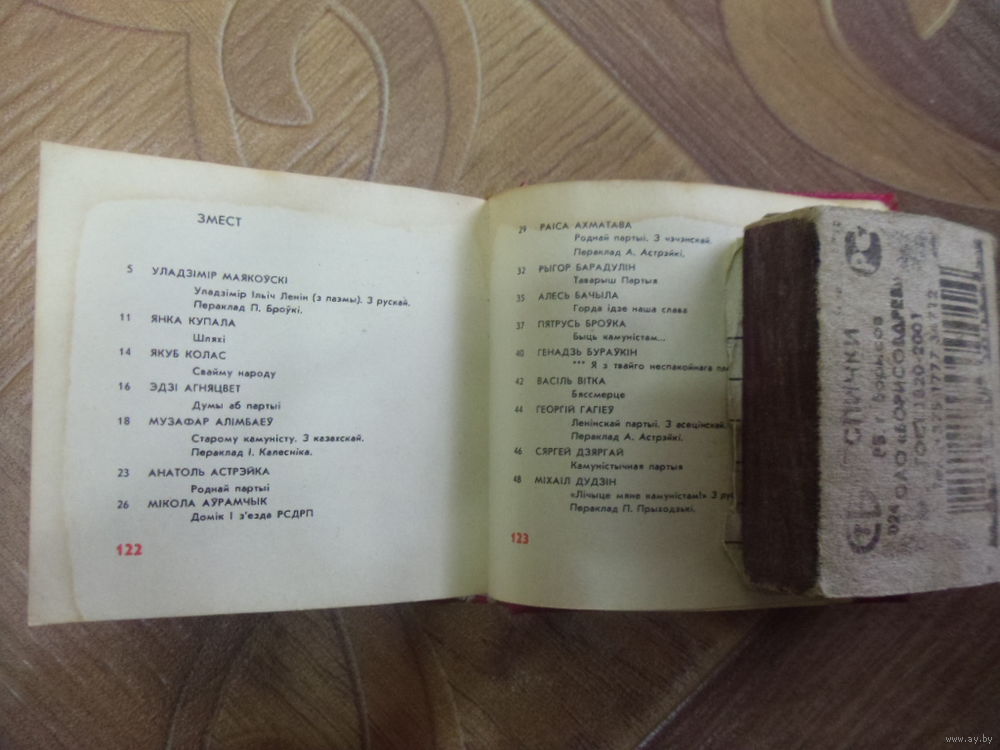 ЗМЕСТ
5 УЛАДЗІМІР МАЯКОЎСКІ
Уладзімір Ільіч Ленін (з паэмы). З рускай.
Пераклад П. Броўкі.
11 ЯНКА КУПАЛА
Шляхі
14 ЯКУБ КОЛАС
Свайму народу
16 ЭДЗІ АГНЯЦВЕТ
Думы аб партыі
18 МУЗАФАР АЛІМБАЕЎ
Старому камуністу. З казахскай.
Пераклад І. Калесніка.
23 АНАТОЛЬ АСТРЭЙКА
Роднай партыі
26 МІКОЛА АЎРАМЧЫК
Домік І з'езда РСДРП
122
29 РАІСА АХМАТАВА
Роднай партыі. З чэчэнскай.
Пераклад А. Астрэйкі.
32 РЫГОР БАРАДУЛІН
Таварыш Партыя
35 АЛЕСЬ БАЧЫЛА
Горда ідзе наша слава
37 ПЯТРУСЬ БРОЎКА
Быць камуністам...
40 ГЕНАДЗЬ БУРАЎКІН
*** Я з твайго неспакойнага
42 ВАСІЛЬ ВІТКА
Бяссмерце
44 ГЕОРГІЙ ГАГІЕЎ
Ленінскай партыі. З асецінскай.
Пераклад А. Астрэйкі.
46 СЯРГЕЙ ДЗЯРГАЙ
Камуністычная партыя
48 МІХАІЛ ДУДЗІН
«Лічыце мяне камуністам!» З
Пераклад П. Прыходзькі.
123
СПИЧКИ
РБ г. Борисов
ОАО "БОРИСОВДРЕВ"
ГОСТ 1820-2001
024
www.ay.by